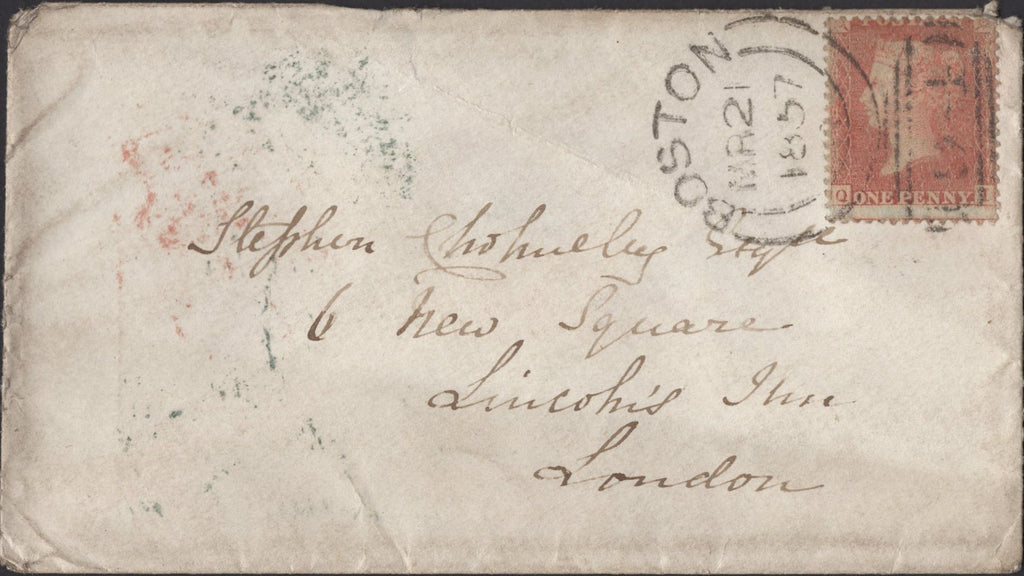 BOSTON
MR 21
1857
ONE PENNY
Stephen Cholmeley Esqre
6 New Square
Lincoln's Inn
London